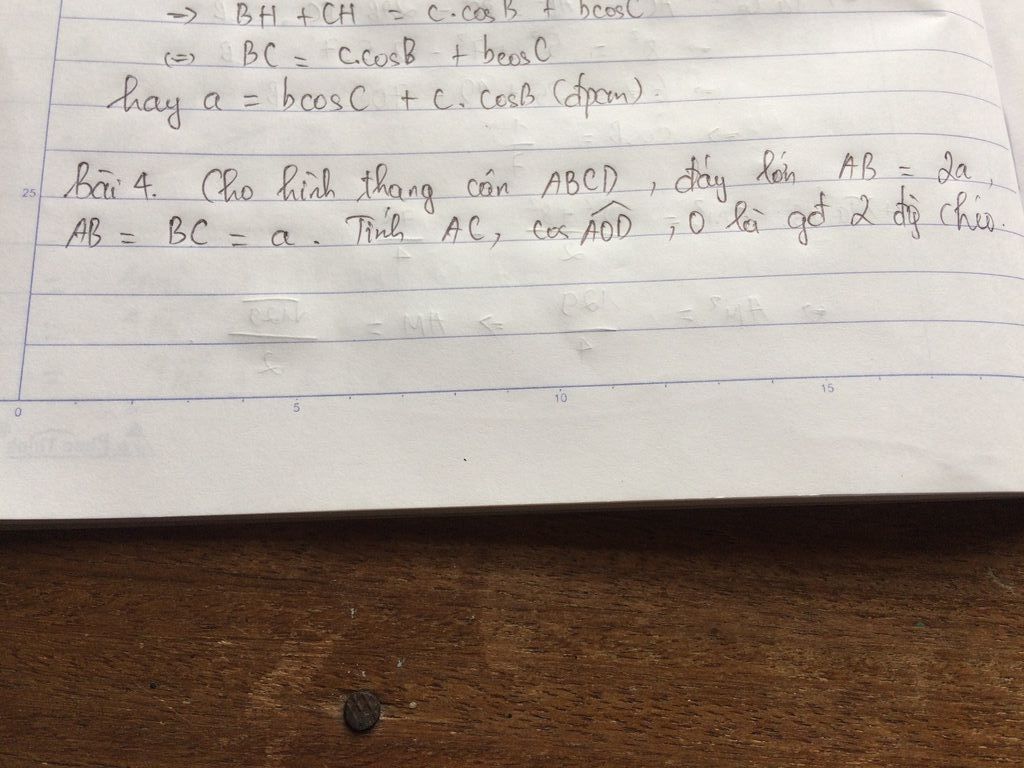 => BH + CH = c.cosB + bcosC
<=> BC = c.cosB + bcosC
hay a = bcosC + c.cosB (đpcm).
Bài 4. Cho hình thang cân ABCD, đáy lớn AB = 2a,
25
AB = BC = a. Tính AC, cos AOD, O là gđ 2 đg chéo.
0 5 10 15